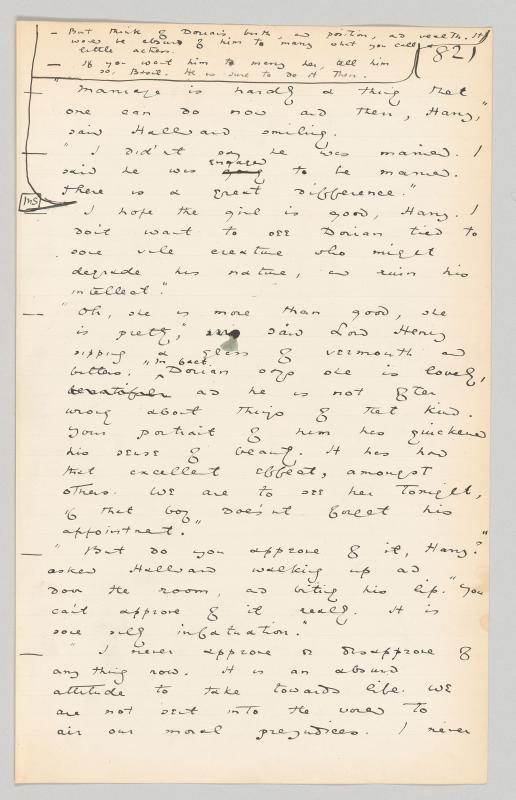 — But think of Dorian's birth, and position, and wealth. It
would be absurd of him to marry what you call a
little actress.
— If you want him to marry her, tell him
so, Basil. He is sure to do it then.
82)
" Marriage is hardly a thing that
one can do now and then, Harry,"
said Hallward smiling.
— " I didn't say he was married. I
said he was engaged to be married.
There is a great difference."
Ins
I hope the girl is good, Harry. I
don't want to see Dorian tied to
some vile creature who might
degrade his nature, and ruin his
intellect."
— "Oh, she is more than good, she
is pretty," said Lord Henry
sipping a glass of vermouth and
bitters. "In fact, Dorian says she is lovely,
beautiful and he is not often
wrong about things of that kind.
Your portrait of him has quickened
his sense of beauty. It has had
that excellent effect, amongst
others. We are to see her tonight,
if that boy does'nt forget his
appointment."
— " But do you approve of it, Harry?"
asked Hallward walking up and
down the room, and biting his lip. "You
can't approve of it really. It is
some silly infatuation."
— " I never approve or disapprove of
any thing now. It is an absurd
attitude to take towards life. We
are not sent into the world to
air our moral prejudices. I never